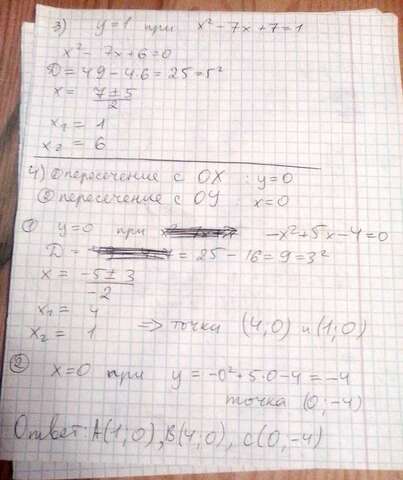 3) y=1 при x²-7x+7=1
x²-7x+6=0
D=49-4·6=25=5²
x= 7±5
2
x₁=1
x₂=6
4) ① пересечение с OX : y=0
② пересечение с OY : x=0
① y=0 при -x²+5x-4=0
D= = 25-16=9=3²
x= -5±3
-2
x₁= 4
x₂= 1 => точки (4,0) и (1;0)
② x=0 при y=-0²+5·0-4=-4
точка (0;-4)
Ответ: A(1;0), B(4;0), C(0,-4)